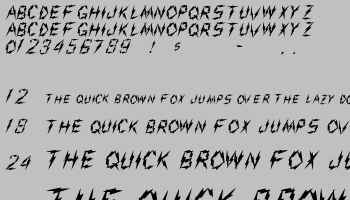 ABCDEFGHIJKLMNOPQRSTUVWXYZ
ABCDEFGHIJKLMNOPQRSTUVWXYZ
0123456789 ! s - . .
12 THE QUICK BROWN FOX JUMPS OVER THE LAZY DO
18 THE QUICK BROWN FOX JUMPS OV
24 THE QUICK BROWN FOX JU
THE QUICK BROWN